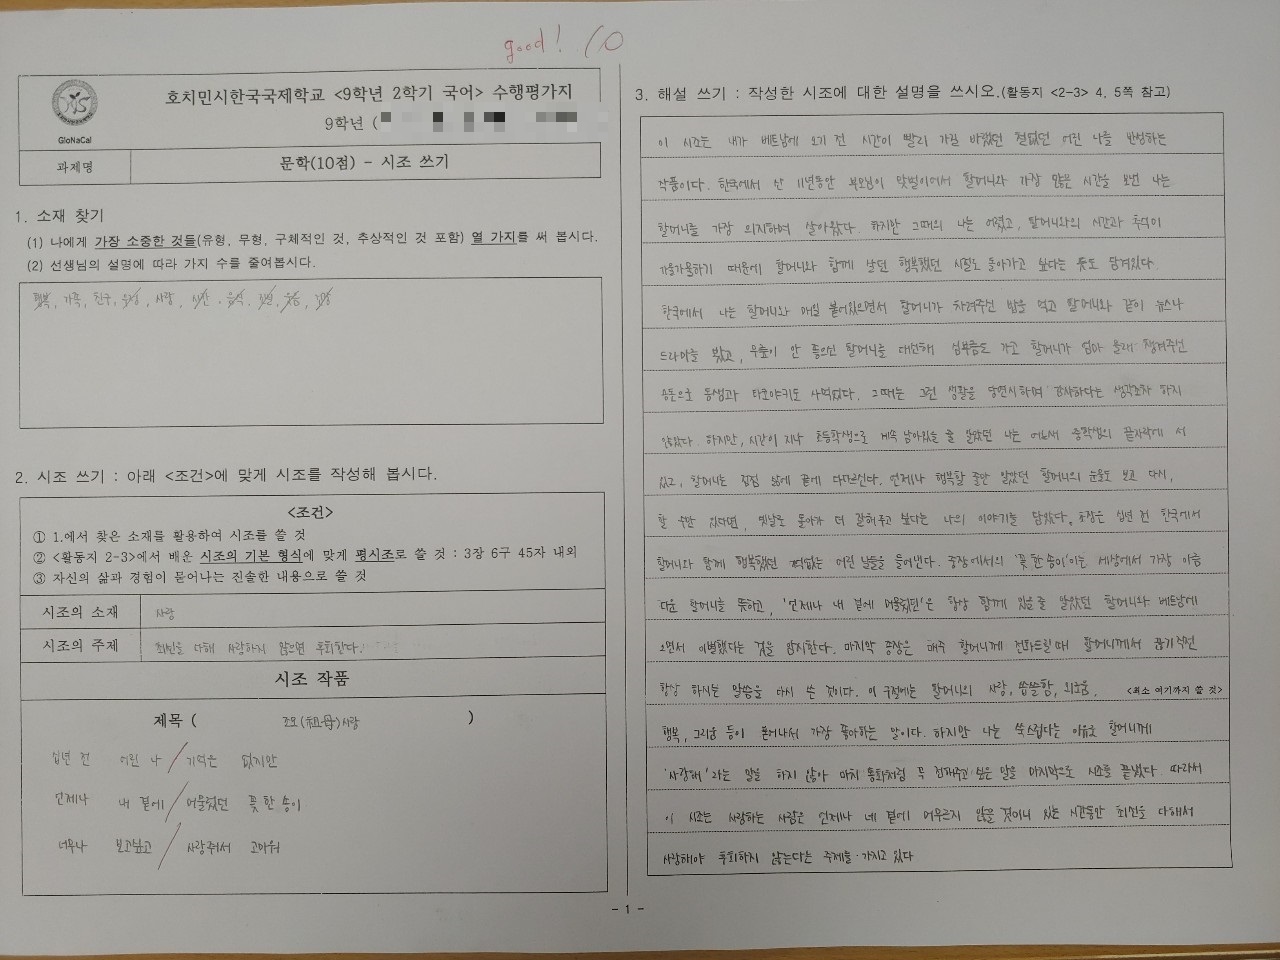 good! 10
호치민시한국국제학교 <9학년 2학기 국어> 수행평가지
9학년 (
GloNaCal
과제명
문학(10점) - 시조 쓰기
1. 소재 찾기
(1) 나에게 가장 소중한 것들(유형, 무형, 구체적인 것, 추상적인 것 포함) 열 가지를 써 봅시다.
(2) 선생님의 설명에 따라 가지 수를 줄여봅시다.
행복, 가족, 친구, 사랑, 시간,
2. 시조 쓰기 : 아래 <조건>에 맞게 시조를 작성해 봅시다.
<조건>
① 1.에서 찾은 소재를 활용하여 시조를 쓸 것
② <활동지 2-3>에서 배운 시조의 기본 형식에 맞게 평시조로 쓸 것 : 3장 6구 45자 내외
③ 자신의 삶과 경험이 묻어나는 진솔한 내용으로 쓸 것
시조의 소재
사랑
시조의 주제
최선을 다해 사랑하지 않으면 후회한다.
시조 작품
제목 ( 조모(祖母)사랑 )
십년 전 어린 나 / 기억은 없지만
언제나 내 곁에 / 머물렀던 꽃 한 송이
너무나 보고싶고 / 사랑줘서 고마워
3. 해설 쓰기 : 작성한 시조에 대한 설명을 쓰시오.(활동지 <2-3> 4, 5쪽 참고)
이 시조는 내가 베트남에 오기 전 시간이 빨리 가길 바랬던 철없던 어린 나를 반성하는
작품이다. 한국에서 산 11년동안 부모님이 맞벌이여서 할머니와 가장 많은 시간을 보낸 나는
할머니를 가장 의지하며 살아왔다. 하지만 그때의 나는 어렸고, 할머니와의 시간과 추억이
가물가물하기 때문에 할머니와 함께 살던 행복했던 시절로 돌아가고 싶다는 뜻도 담겨있다.
한국에서 나는 할머니와 매일 붙어있으면서 할머니가 차려주신 밥을 먹고 할머니와 같이 뉴스나
드라마를 봤고, 무릎이 안 좋으신 할머니를 대신해 심부름도 가고 할머니가 엄마 몰래 챙겨주신
용돈으로 동생과 타코야키도 사먹었다. 그때는 그런 생활을 당연시하며 감사하다는 생각조차 하지
않았다. 하지만, 시간이 지나 초등학생으로 계속 남아있을 줄 알았던 나는 어느새 중학생의 끝자락에 서
있고, 할머니는 점점 삶에 끝에 다다르신다. 언제나 행복할 줄만 알았던 할머니의 눈물도 보고 다시,
할 수만 있다면, 옛날로 돌아가 더 잘해주고 싶다는 나의 이야기를 담았다. 초장은 십년 전 한국에서
할머니와 함께 행복했던 어린 날들을 들어낸다. 중장에서의 '꽃 한 송이'는 세상에서 가장 아름
다운 할머니를 뜻하고, '언제나 내 곁에 머물렀던'은 항상 함께 있을 줄 알았던 할머니와 베트남에
오면서 이별했다는 것을 암시한다. 마지막 종장은 매주 할머니께 전화드릴때 할머니께서 끊기직전
항상 하시는 말씀을 다시 쓴 것이다. 이 구절에는 할머니의 사랑, 씁쓸함, 외로움, <최소 여기까지 쓸 것>
행복, 그리움 등이 묻어나서 가장 좋아하는 말이다. 하지만 나는 쑥스럽다는 이유로 할머니께
'사랑해'라는 말을 하지 않아 마치 통화처럼 꼭 전해주고 싶은 말을 마지막으로 시조를 끝냈다. 따라서
이 시조는 사랑하는 사람은 언제나 네 곁에 머무르지 않을 것이니 있는 시간동안 최선을 다해서
사랑해야 후회하지 않는다는 주제를 가지고 있다
- 1 -